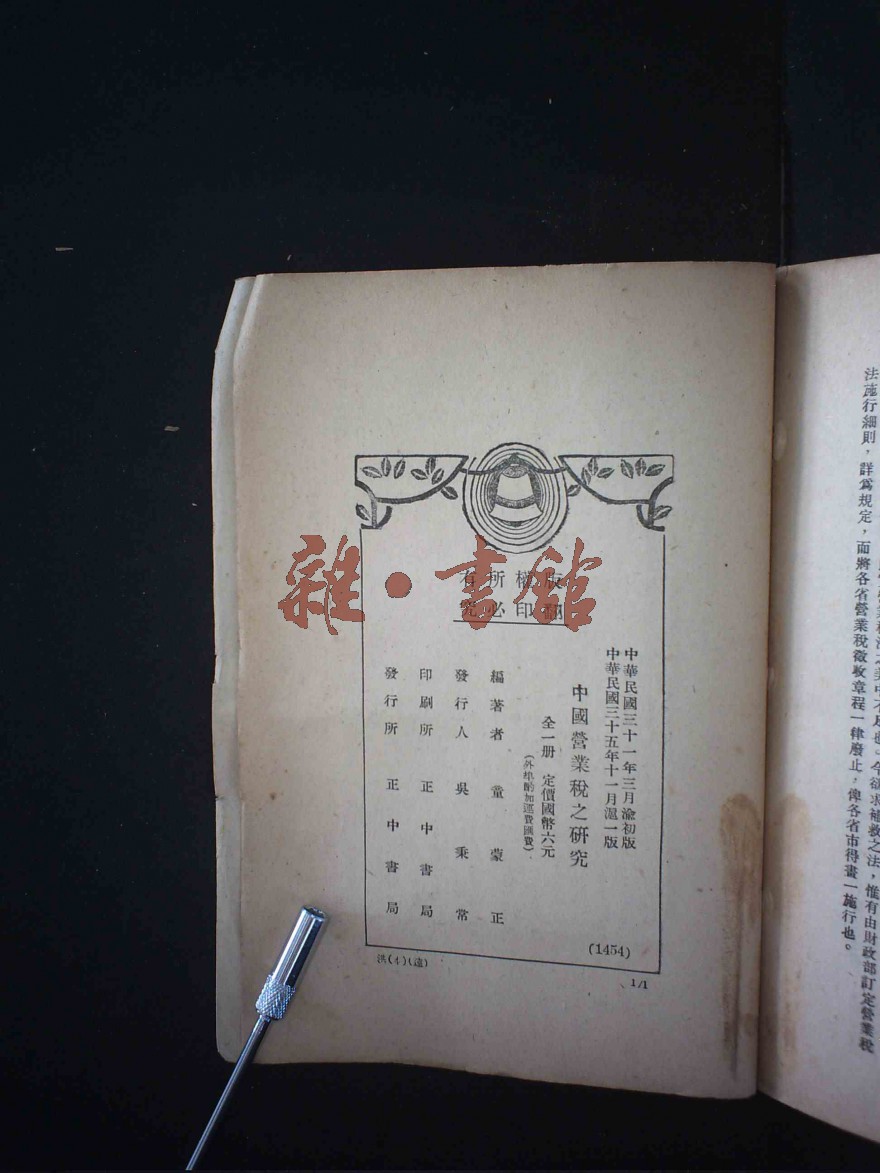 雜·書館
版權所有
翻印必究
中華民國三十一年三月渝初版
中華民國三十五年十一月滬一版
中國營業稅之研究
全一册 定價國幣六元
(外埠酌加運費匯費)
編著者 童蒙正
發行人 吳秉常
印刷所 正中書局
發行所 正中書局
(1454)
洪(本)(遠)
1/1
法施行細則，詳爲規定，而將各省營業稅徵收章程一律廢止，俾各省市得畫一施行也。
今欲求補救之法，惟有由財政部訂定營業稅